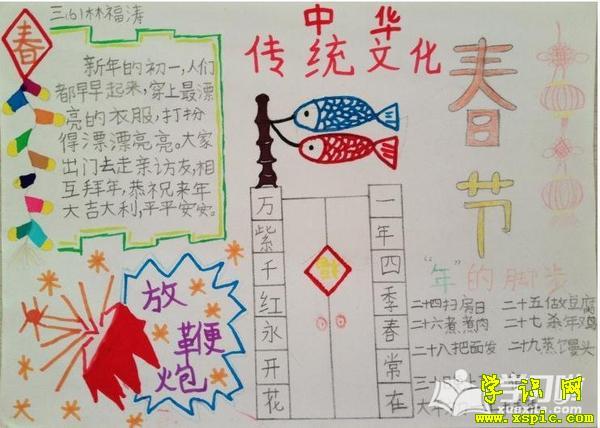 三(6)林福涛
春
新年的初一,人们
都早早起来,穿上最漂
亮的衣服,打扮
得漂漂亮亮。大家
出门去走亲访友,相
互拜年,恭祝来年
大吉大利,平平安安。
中华
传统文化
春节
万紫千红永开花
一年四季春常在
放
鞭
炮
“年”的脚步
二十四扫房日
二十五做豆腐
二十六煮煮肉
二十七杀年鸡
二十八把面发
二十九蒸馒头
三十
大
学习啦
xuexila.com
学识网
www.xspic.com